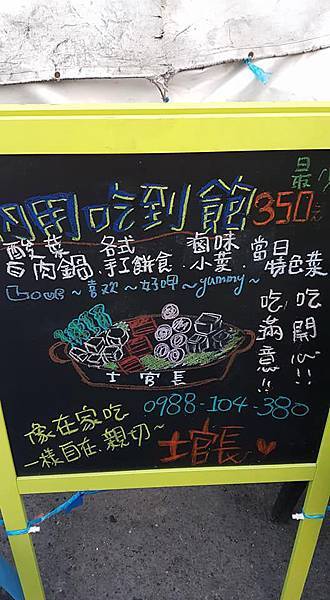 最
用吃到飽350元
酸菜白肉鍋.各式手工餅食.滷味小菜.當日特色菜
Love~喜欢~好呷~yummy~
吃開心!!
吃滿意!!
士官長
0988-104-380
像在家吃
一樣自在.親切~
士官長